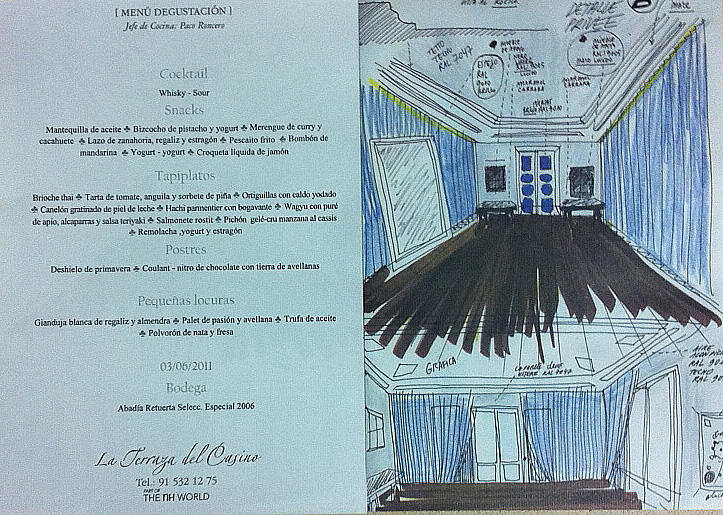 [ MENÚ DEGUSTACIÓN ]
Jefe de Cocina: Paco Roncero
Cocktail
Whisky - Sour
Snacks
Mantequilla de aceite ♣ Bizcocho de pistacho y yogurt ♣ Merengue de curry y
cacahuete ♣ Lazo de zanahoria, regaliz y estragón ♣ Pescaito frito ♣ Bombón de
mandarina ♣ Yogurt - yogurt ♣ Croqueta líquida de jamón
Tapiplatos
Brioche thai ♣ Tarta de tomate, anguila y sorbete de piña ♣ Ortiguillas con caldo yodado
♣ Canelón gratinado de piel de leche ♣ Hachi parmentier con bogavante ♣ Wagyu con puré
de apio, alcaparras y salsa teriyaki ♣ Salmonete rostit ♣ Pichón gelé-cru manzana al cassis
♣ Remolacha ,yogurt y estragón
Postres
Deshielo de primavera ♣ Coulant - nitro de chocolate con tierra de avellanas
Pequeñas locuras
Gianduja blanca de regaliz y almendra ♣ Palet de pasión y avellana ♣ Trufa de aceite
♣ Polvorón de nata y fresa
03/06/2011
Bodega
Abadía Retuerta Selecc. Especial 2006
La Terraza del Casino
Tel.: 91 532 12 75
PART OF
THE nH WORLD
DETALLE
TETO
TECNO
RAL 7047
ESPEJO
RAL
MARMOL
CARRARA
MARMOL
CARRARA
GRAFICA
RAL 7047
AIRE
TECHO